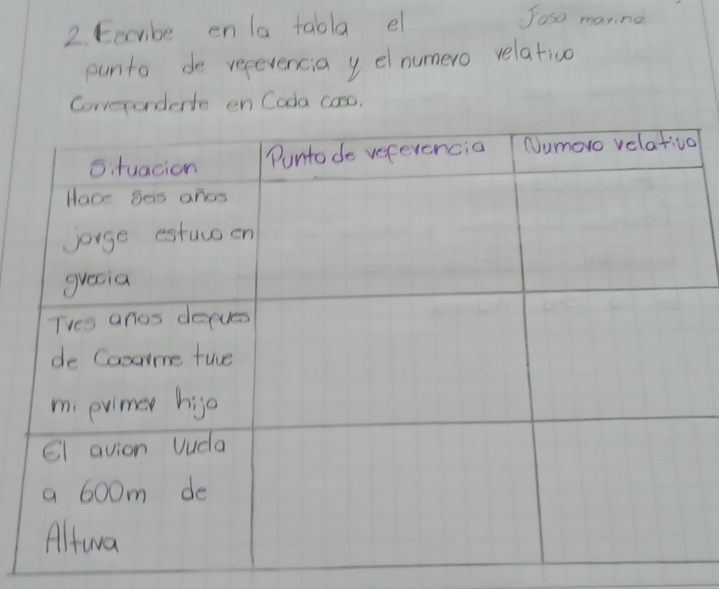 2. Eecvibe en la tabla el Josa marina
punto de reperencia y el numero relativo
Correspondente en Cada caso.
Situacion Punto de referencia Numero relativo
Hace Seis años
jorge estuvo en
grecia
Tres anos depues
de Casarme tuve
mi primer hijo
El avion Vuela
a 600m de
Altura